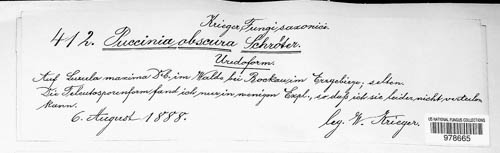 Krieger, Fungi saxonici.
412. Puccinia obscura Schröter.
Uredoform.
Auf Luzula maxima DC, im Walde bei Bockau, im Erzgebirge, selten.
Die Teleutosporenform fand ich, nur in wenigen Expl., so daß ich sie leider nicht verteilen
kann.
6. August 1888.
leg. W. Krieger.
US NATIONAL FUNGUS COLLECTIONS
978665